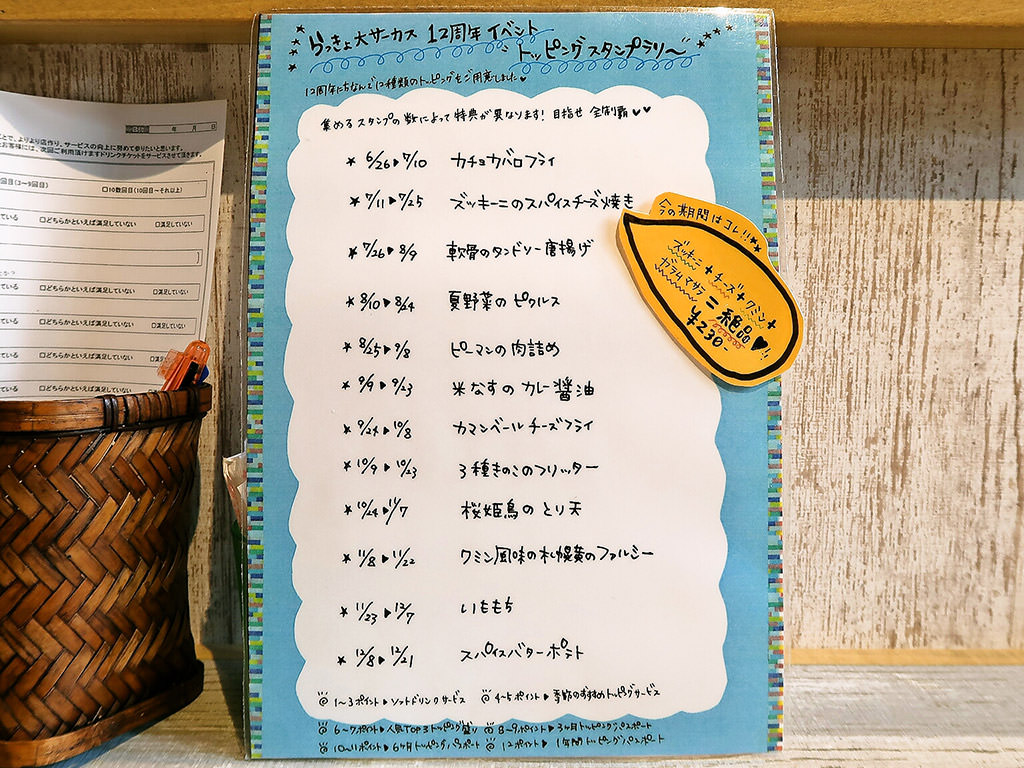 らっきょ大サーカス 12周年イベント
トッピングスタンプラリ〜
12周年にちなんで12種類のトッピングをご用意しました♥
集めるスタンプの数によって特典が異なります! 目指せ 全制覇♥♥
★ 6/26▶7/10 カチョカバロフライ
★ 7/11▶7/25 ズッキーニのスパイスチーズ焼き
★ 7/26▶8/9 軟骨のタンドリー唐揚げ
★ 8/10▶8/24 夏野菜のピクルス
★ 8/25▶9/8 ピーマンの肉詰め
★ 9/9▶9/23 米なすのカレー醤油
★ 9/24▶10/8 カマンベールチーズフライ
★ 10/9▶10/23 3種きのこのフリッター
★ 10/24▶11/7 桜姫鳥のとり天
★ 11/8▶11/22 クミン風味の札幌黄のファルシー
★ 11/23▶12/7 いももち
★ 12/8▶12/21 スパイスバターポテト
1〜3ポイント▶ソフトドリンクサービス 4〜5ポイント▶季節のおすすめトッピングサービス
6〜7ポイント▶人気TOP3トッピング盛り 8〜9ポイント▶3ヶ月トッピングパスポート
10〜11ポイント▶6ヶ月トッピングパスポート 12ポイント▶1年間トッピングパスポート
今の期間はコレ!!★★
ズッキーニ+チーズ+クミン+
ガラムマサラ
=絶品♥!!
¥230-
年 月 日
とで、よりより店作り、サービスの向上に努めて参りたいと思います。
お客様には、次回ご利用頂けますドリンクチケットをサービスさせて頂きます。
回目(3〜9回目) □10数回目(10回目〜それ以上)
ている □どちらかといえば満足していない □満足していない
いる □どちらかといえば満足していない □満足していない
ている □どちらかといえば満足していない □満足していない
ている □どちらかといえば満足していない □満足
いる □どちらかといえば満足していない